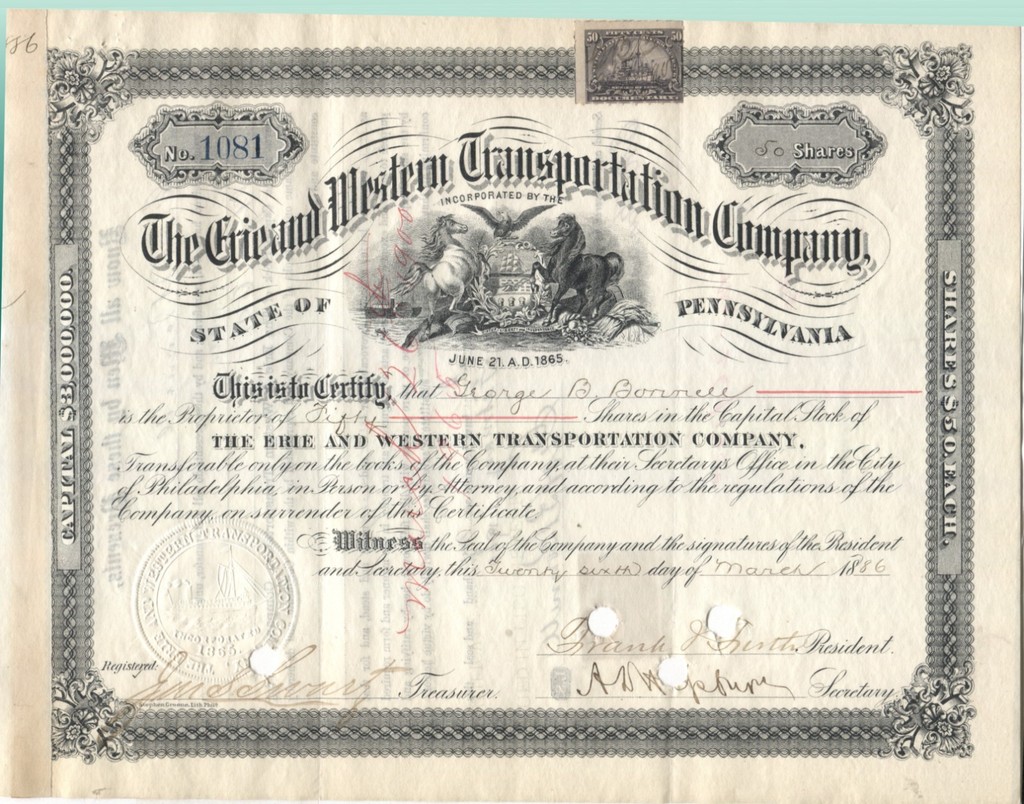 86
50 FIFTY CENTS 50
DOCUMENTARY
No. 1081
50 Shares
The Erie and Western Transportation Company,
INCORPORATED BY THE
STATE OF PENNSYLVANIA
JUNE 21. A.D. 1865.
CAPITAL $3,000,000.
SHARES $50. EACH.
This is to Certify, that George B. Bonnell
is the Proprietor of Fifty Shares in the Capital Stock of
THE ERIE AND WESTERN TRANSPORTATION COMPANY,
Transferable only on the books of the Company, at their Secretary's Office in the City
of Philadelphia, in Person or by Attorney, and according to the regulations of the
Company, on surrender of this Certificate.
Witness the Seal of the Company and the signatures of the President
and Secretary, this Twenty sixth day of March 1886
THE ERIE AND WESTERN TRANSPORTATION COMPANY
1865.
Frank J. Firth President.
Registered:
Treasurer.
A D Hepburn Secretary.